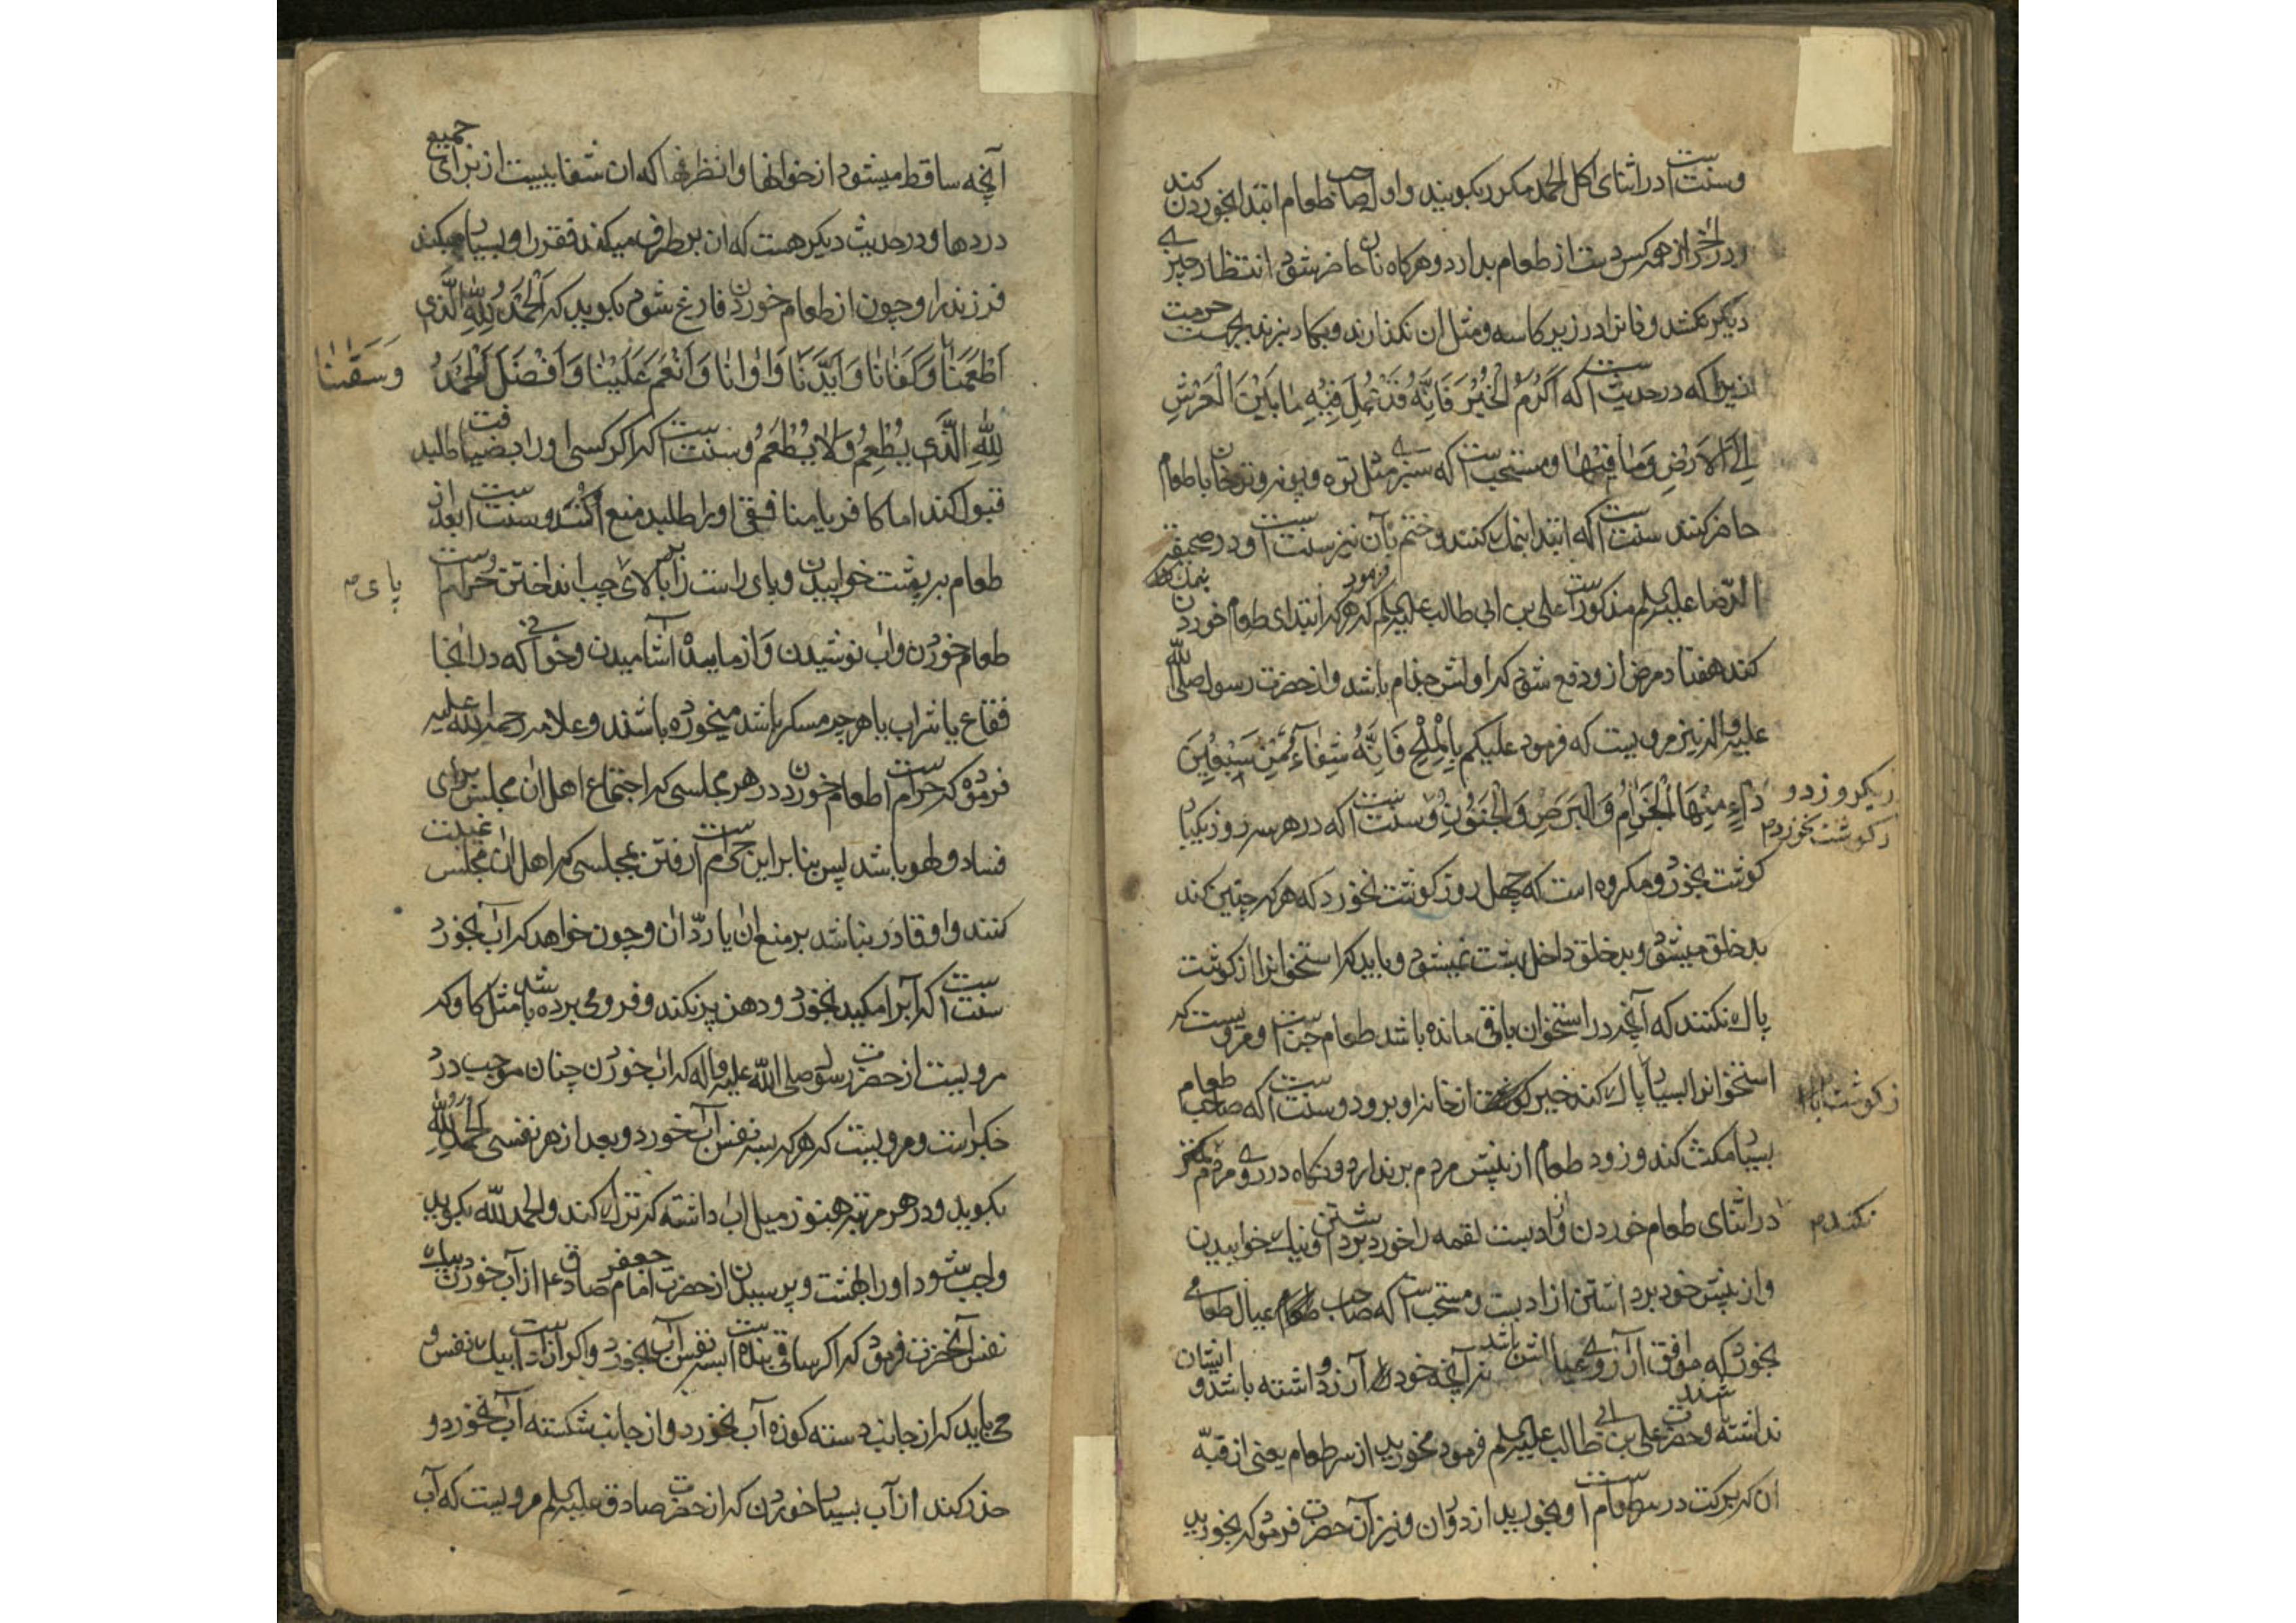 وسنت است در اثنای اکل الحمد مکرر بکویند واول صاحب طعام ابتدا بخوردن کند
ودر آخر از همه کس دست از طعام بدارد وهرکاه نان حاضر شود انتظار چیزی
دیکر نکشد ونانرا در زیر کاسه ومثل ان نکذارند وبکارد نبرند بجهت حرمت
زیرا که در حدیث است که اَکْرِمُ الْخُبْزَ فَاِنَّهُ قَدْ عَمِلَ فِیْهِ مَا بَیْنَ الْعَرْشِ
اِلَی الْاَرْضِ وَمَا فِیْهَا ومستحب است که سبزی مثل تره وپونه وترخان با طعام
حاضر کنند سنت است که ابتدا بنمک کنند وختم بآن نیز سنت است ودر صحیفة
الرّضا علیه السلم مذکور است علی بن ابی طالب علیه السلم فرمود که هرکه ابتدای طعام خوردن بنمک
کند هفتاد مرض ازو دفع شود که اولش جذام باشد واز حضرت رسول صلی الله
علیه واله نیز مرویست که فرمود علیکم بِالْمِلْحِ فَاِنَّهُ شِفَاءٌ مِّنْ سَبْعِیْنَ
دَاءٍ مِنْهَا الْجَذَامُ وَالْبَرَصُ وَالْجُنُوْنُ وسنت است که در هر سه روز یکبار
ریکروز دو
رکوشت نخورد م
کوشت بخورد ومکروه است که چهل روز کوشت نخورد که هرکه چنین کند
بد خلق میشود وبد خلق داخل بهشت نمیشود وباید که استخوانرا از کوشت
پاک نکنند که آنچه در استخوان باقی مانده باشد طعام جن است ومرویست که
استخوانرا بسیار پاک کند خیر از خانه او برود وسنت است که صاحب طعام
بسیار مکث کند وزود طعام از پیش مردم برندارد ونکاه در روی مردم
نکند م
در اثنای طعام خوردن واز ادبست لقمه را خورد برداشتن ونیک خوابیدن
واز پیش خود برداشتن از ادبست ومستحب است که صاحب عیال طعامی
بخورد که موافق آرزوی عیالش باشد نه آنچه خود آرزو داشته باشد وایشان
نداشته باشند وحضرت علی بن ابی طالب علیه السلم فرمود مخورید از سر طعام یعنی از قبّه
ان که برکت در سر طعام است وبخورید از دور آن ونیز آن حضرت فرمود که بخورید
آنچه ساقط میشود از خوانها وانظرفها که ان شفاییست از برای جمیع
دردها ودر حدیث دیکر هست که ان بر طرف میکند فقر را وبسیار میکند
فرزند را وچون از طعام خوردن فارغ شود بکوید که اَلْحَمْدُ لِلّٰهِ الَّذِی
اَطْعَمَنَا وَکَفَانَا وَاَیَّدَنَا وَاٰوَانَا وَاَنْعَمَ عَلَیْنَا وَاَفْضَلَ اَلْحَمْدُ
وَسَقٰىنَا
لِلّٰهِ الَّذِی یُطْعِمُ وَلَا یُطْعَمُ وسنت است که اکر کسی اورا بضیافت طلبد
قبول کند اما کافر یا منافقی اورا طلبد منع کنند وسنت است بعد از
طعام بر پشت خوابیدن وپای راست را بر بالای چپ انداختن وحرام است
پای م
طعام خوردن واب نوشیدن واز مایده آشامیدن وخوانی که در انجا
فقاع یا شراب یا هرچه مسکر باشد میخورده باشند وعلامه رحمة الله علیه
فرموده که حرام است طعام خوردن در هر مجلسی که اجتماع اهل ان مجلس برای
فساد ولهو باشد پس بنا براین حرام است رفتن بمجلسی که اهل ان مجلس غیبت
کنند واو قادر نباشد بر منع ان یا ردّ ان وچون خواهد که اب بخورد
سنت است که آبرا مکیده بخورد ودهن پر نکند وفرو می برده باشد مثل کاو که
مرویست از حضرت رسول صلی الله علیه واله که اب خوردن چنان موجب درد
جکر است ومرویست که هرکه بسه نفس آب خورد وبعد از هر نفسی الحمد لله
بکوید ودر هر مرتبه هنوز میل اب داشته که ترک کند والحمد لله بکوید
واجب شود اورا بهشت وپرسیدن از حضرت امام جعفر صادق ع از آب خوردن بیک
نفس آنحضرت فرمود که اکر ساقی بنده است بسه نفس آب بخورد واکر ازاد است بیک نفس و
می باید که از جانب دسته کوزه آب نخورد واز جانب شکسته آب نخورد و
حذر کند از آب بسیار خوردن که از حضرت صادق علیه السلم مرویست که آب